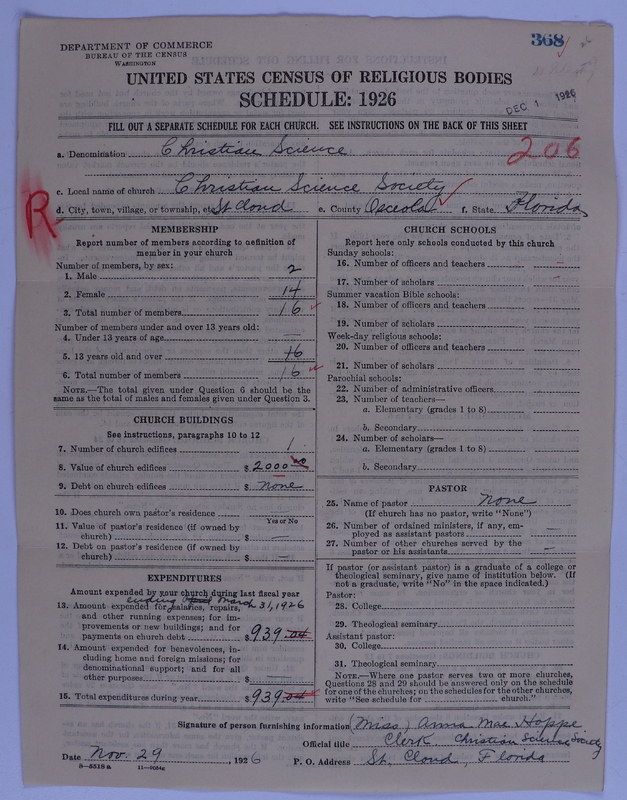 368
DEPARTMENT OF COMMERCE
BUREAU OF THE CENSUS
WASHINGTON
UNITED STATES CENSUS OF RELIGIOUS BODIES
SCHEDULE: 1926
DEC 1 1926
FILL OUT A SEPARATE SCHEDULE FOR EACH CHURCH. SEE INSTRUCTIONS ON THE BACK OF THIS SHEET
a. Denomination Christian Science
206
c. Local name of church Christian Science Society
R
d. City, town, village, or township, etc. St Cloud e. County Osceola f. State Florida
MEMBERSHIP
Report number of members according to definition of
member in your church
Number of members, by sex:
1. Male 2
2. Female 14
3. Total number of members 16
Number of members under and over 13 years old:
4. Under 13 years of age —
5. 13 years old and over 16
6. Total number of members 16
NOTE.—The total given under Question 6 should be the
same as the total of males and females given under Question 3.
CHURCH BUILDINGS
See instructions, paragraphs 10 to 12
7. Number of church edifices 1
8. Value of church edifices $ 2000.00
9. Debt on church edifices $ none
10. Does church own pastor's residence —
Yes or No
11. Value of pastor's residence (if owned by
church) $ —
12. Debt on pastor's residence (if owned by
church) $ —
EXPENDITURES
Amount expended by your church during last fiscal year
ending March 31, 1926
13. Amount expended for salaries, repairs,
and other running expenses; for im-
provements or new buildings; and for
payments on church debt $ 939.04
14. Amount expended for benevolences, in-
cluding home and foreign missions; for
denominational support; and for all
other purposes $ —
15. Total expenditures during year $ 939.04
CHURCH SCHOOLS
Report here only schools conducted by this church
Sunday schools:
16. Number of officers and teachers —
17. Number of scholars —
Summer vacation Bible schools:
18. Number of officers and teachers
19. Number of scholars
Week-day religious schools:
20. Number of officers and teachers
21. Number of scholars
Parochial schools:
22. Number of administrative officers
23. Number of teachers—
a. Elementary (grades 1 to 8)
b. Secondary
24. Number of scholars—
a. Elementary (grades 1 to 8)
b. Secondary
PASTOR
25. Name of pastor none
(If church has no pastor, write "None")
26. Number of ordained ministers, if any, em-
ployed as assistant pastors —
27. Number of other churches served by the
pastor or his assistants —
If pastor (or assistant pastor) is a graduate of a college or
theological seminary, give name of institution below. (If
not a graduate, write "No" in the space indicated.)
Pastor:
28. College
29. Theological seminary
Assistant pastor:
30. College
31. Theological seminary
NOTE.—Where one pastor serves two or more churches,
Questions 28 and 29 should be answered only on the schedule
for one of the churches; on the schedules for the other churches,
write "See schedule for church."
Signature of person furnishing information (Miss) Anna Mae Hoppe
Official title Clerk Christian Science Society
Date Nov. 29, 1926 P. O. Address St. Cloud, Florida
8—5518a 11—9054a